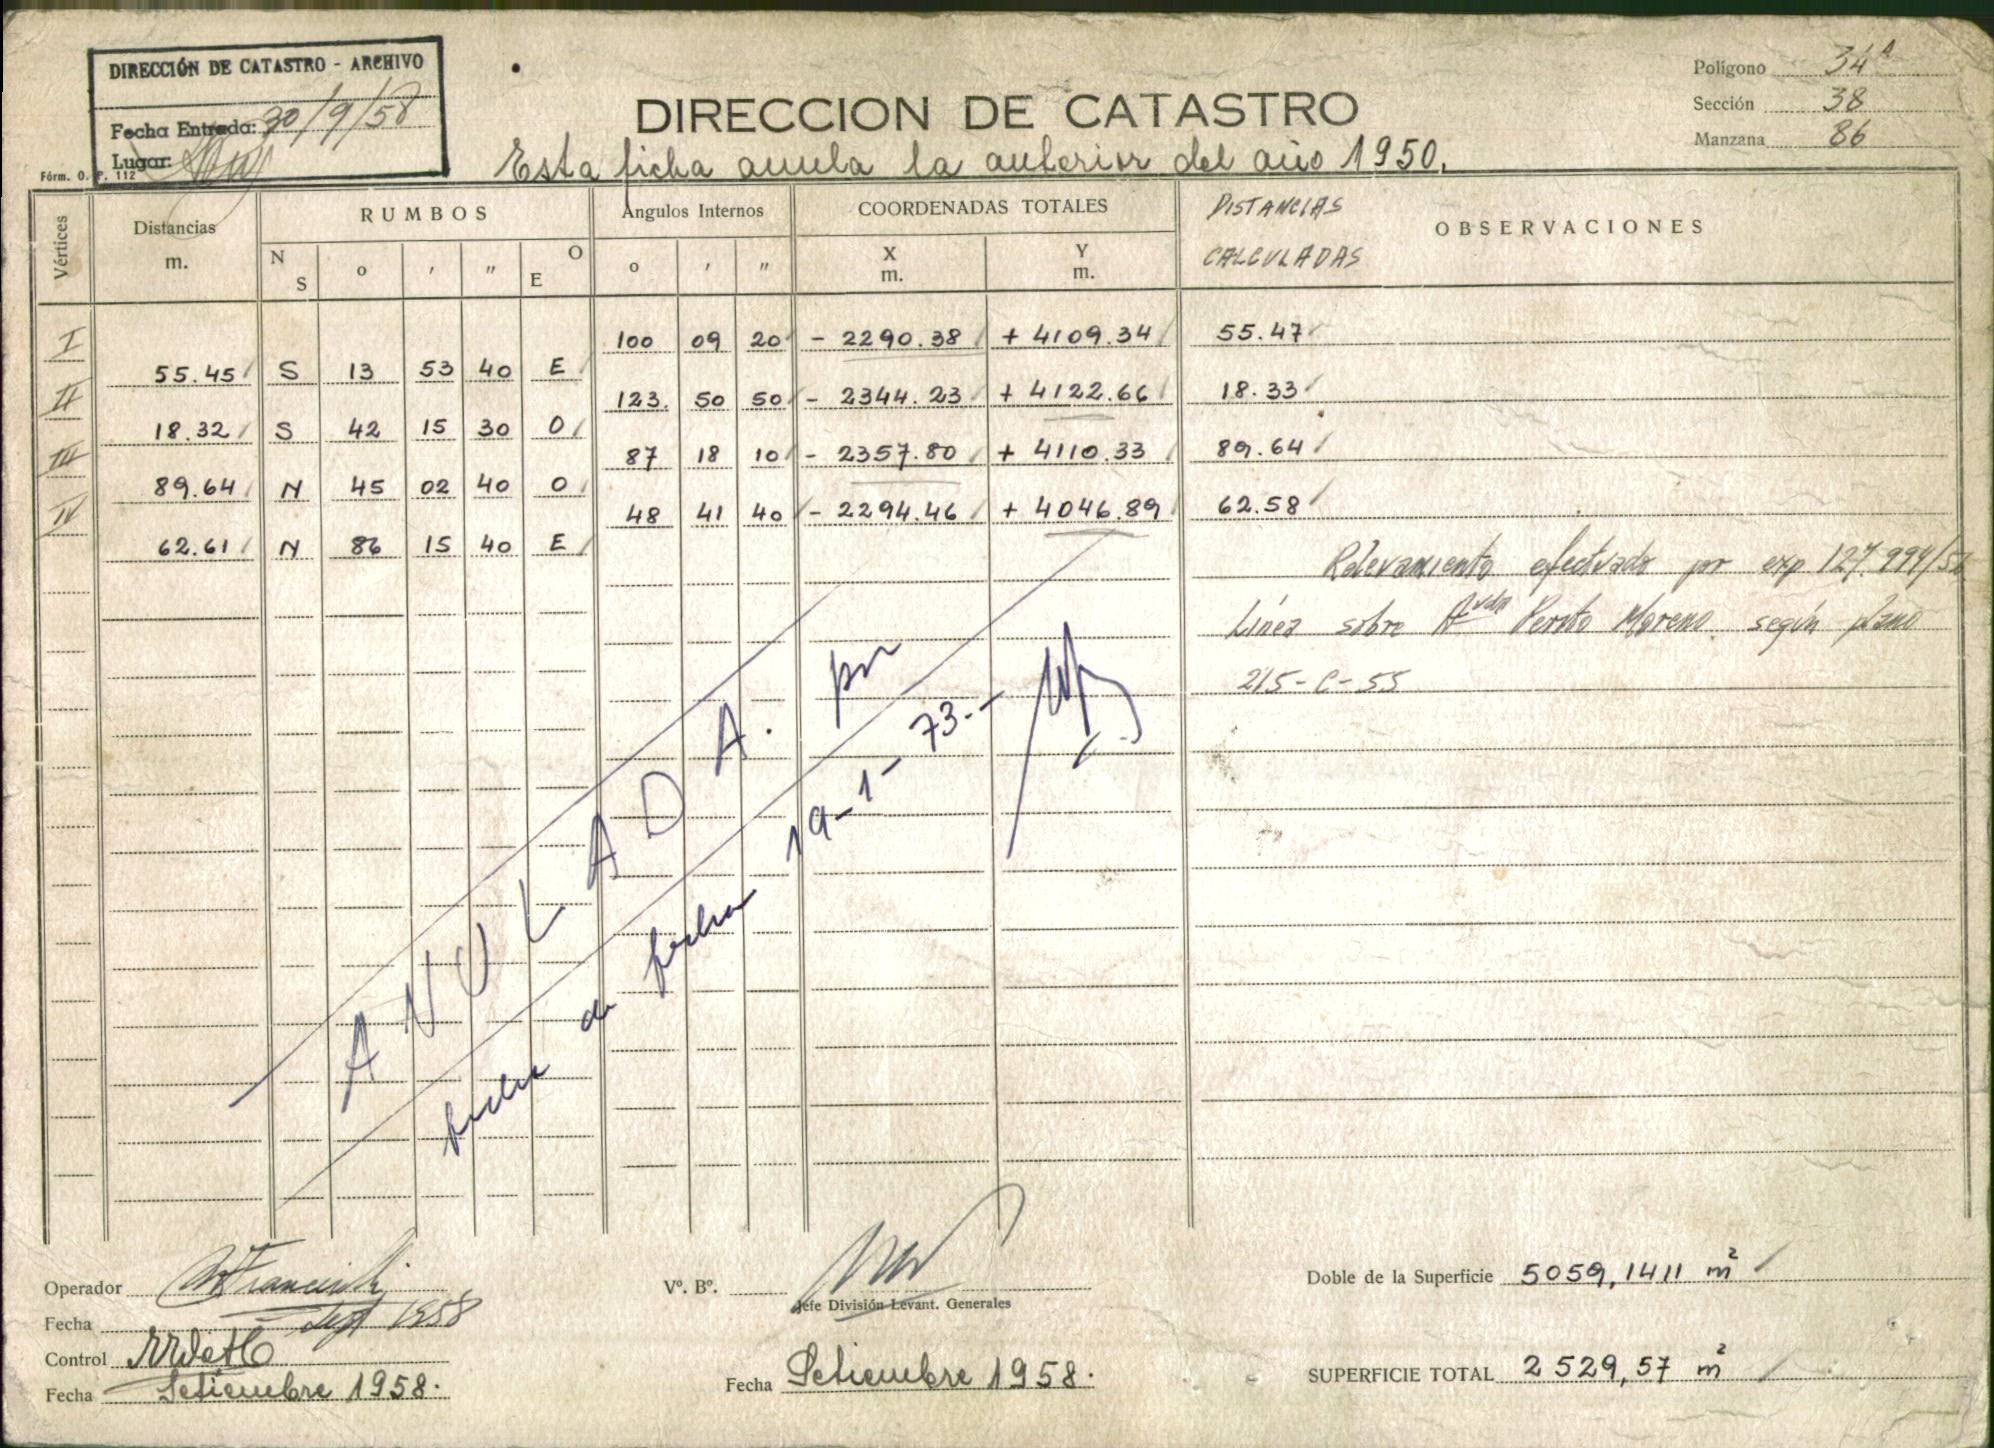 DIRECCIÓN DE CATASTRO - ARCHIVO
Fecha Entrada: 30/9/58
Lugar:
Fórm. O. P. 112
DIRECCION DE CATASTRO
Esta ficha anula la anterior del año 1950.
Polígono 34A
Sección 38
Manzana 86
Vértices Distancias m. RUMBOS N S o ′ ″ O E Ángulos Internos o ′ ″ COORDENADAS TOTALES X m. Y m. DISTANCIAS CALCULADAS OBSERVACIONES
I 100 09 20 - 2290.38 + 4109.34 55.47
55.45 S 13 53 40 E
II 123. 50 50 - 2344.23 + 4122.66 18.33
18.32 S 42 15 30 O
III 87 18 10 - 2357.80 + 4110.33 89.64
89.64 N 45 02 40 O
IV 48 41 40 - 2294.46 + 4046.89 62.58
62.61 N 86 15 40 E
Relevamiento efectuado por exp 127.994/
Línea sobre Avda Perito Moreno según plano
215-C-55
ANULADA. por
ficha de fecha 19-1-73.-
Operador
Fecha Sept 1958
Control
Fecha Setiembre 1958.
Vº. Bº.
Jefe División Levant. Generales
Fecha Setiembre 1958.
Doble de la Superficie 5059,1411 m²
SUPERFICIE TOTAL 2529,57 m²